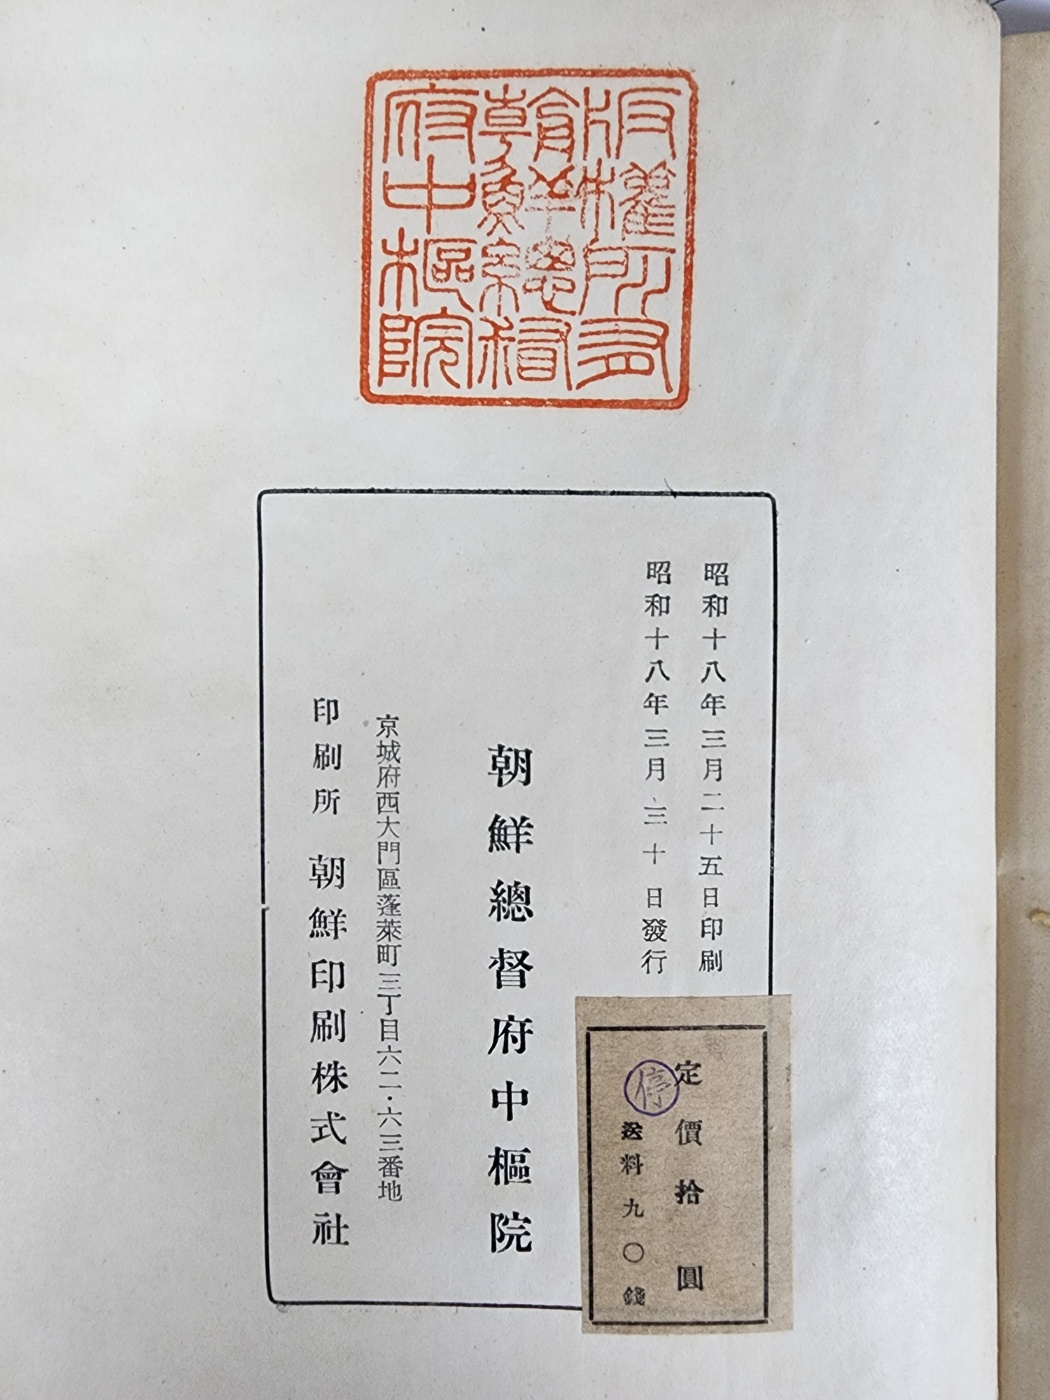 版權所有
朝鮮總督
府中樞院
昭和十八年三月二十五日印刷
昭和十八年三月三十日發行
朝鮮總督府中樞院
京城府西大門區蓬萊町三丁目六二・六三番地
印刷所 朝鮮印刷株式會社
定價拾圓
停
送料九〇錢